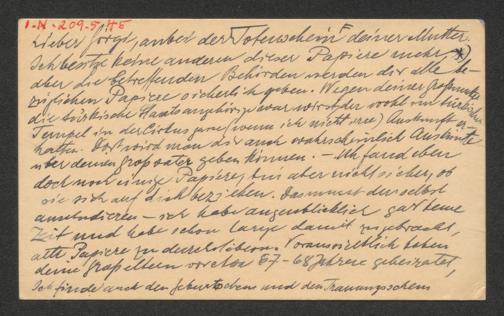 I.N. 209.545
Lieber Jörgi, anbei der Totenschein deiner Mutter.
Ich besitze keine anderen dieser Papiere mehr, *)
aber die betreffenden Behörden werden dir alle be-
züglichen Papiere sicherlich geben. Wegen deiner Grossmutter
die türkische Staatsangehörige war wirst du wohl im türkischen
Tempel in der Circusgasse (wenn ich nicht irre) Auskunft er-
halten. Dort wird man dir auch wahrscheinlich Auskünfte
über deinen Grossvater geben können. – Ich fand eben
doch noch einige Papiere, bin aber nicht sicher, ob
sie sich auf dich beziehen. Das musst du selbst
ausstudieren – ich habe augenblicklich gar keine
Zeit und habe schon lange damit zugebracht,
alte Papiere zu durchstöbern. Voraussichtlich haben
deine Grosseltern vor etwa 67-68 Jahren geheiratet,
Ich finde auch den Geburtsschein und den Trauungsschein